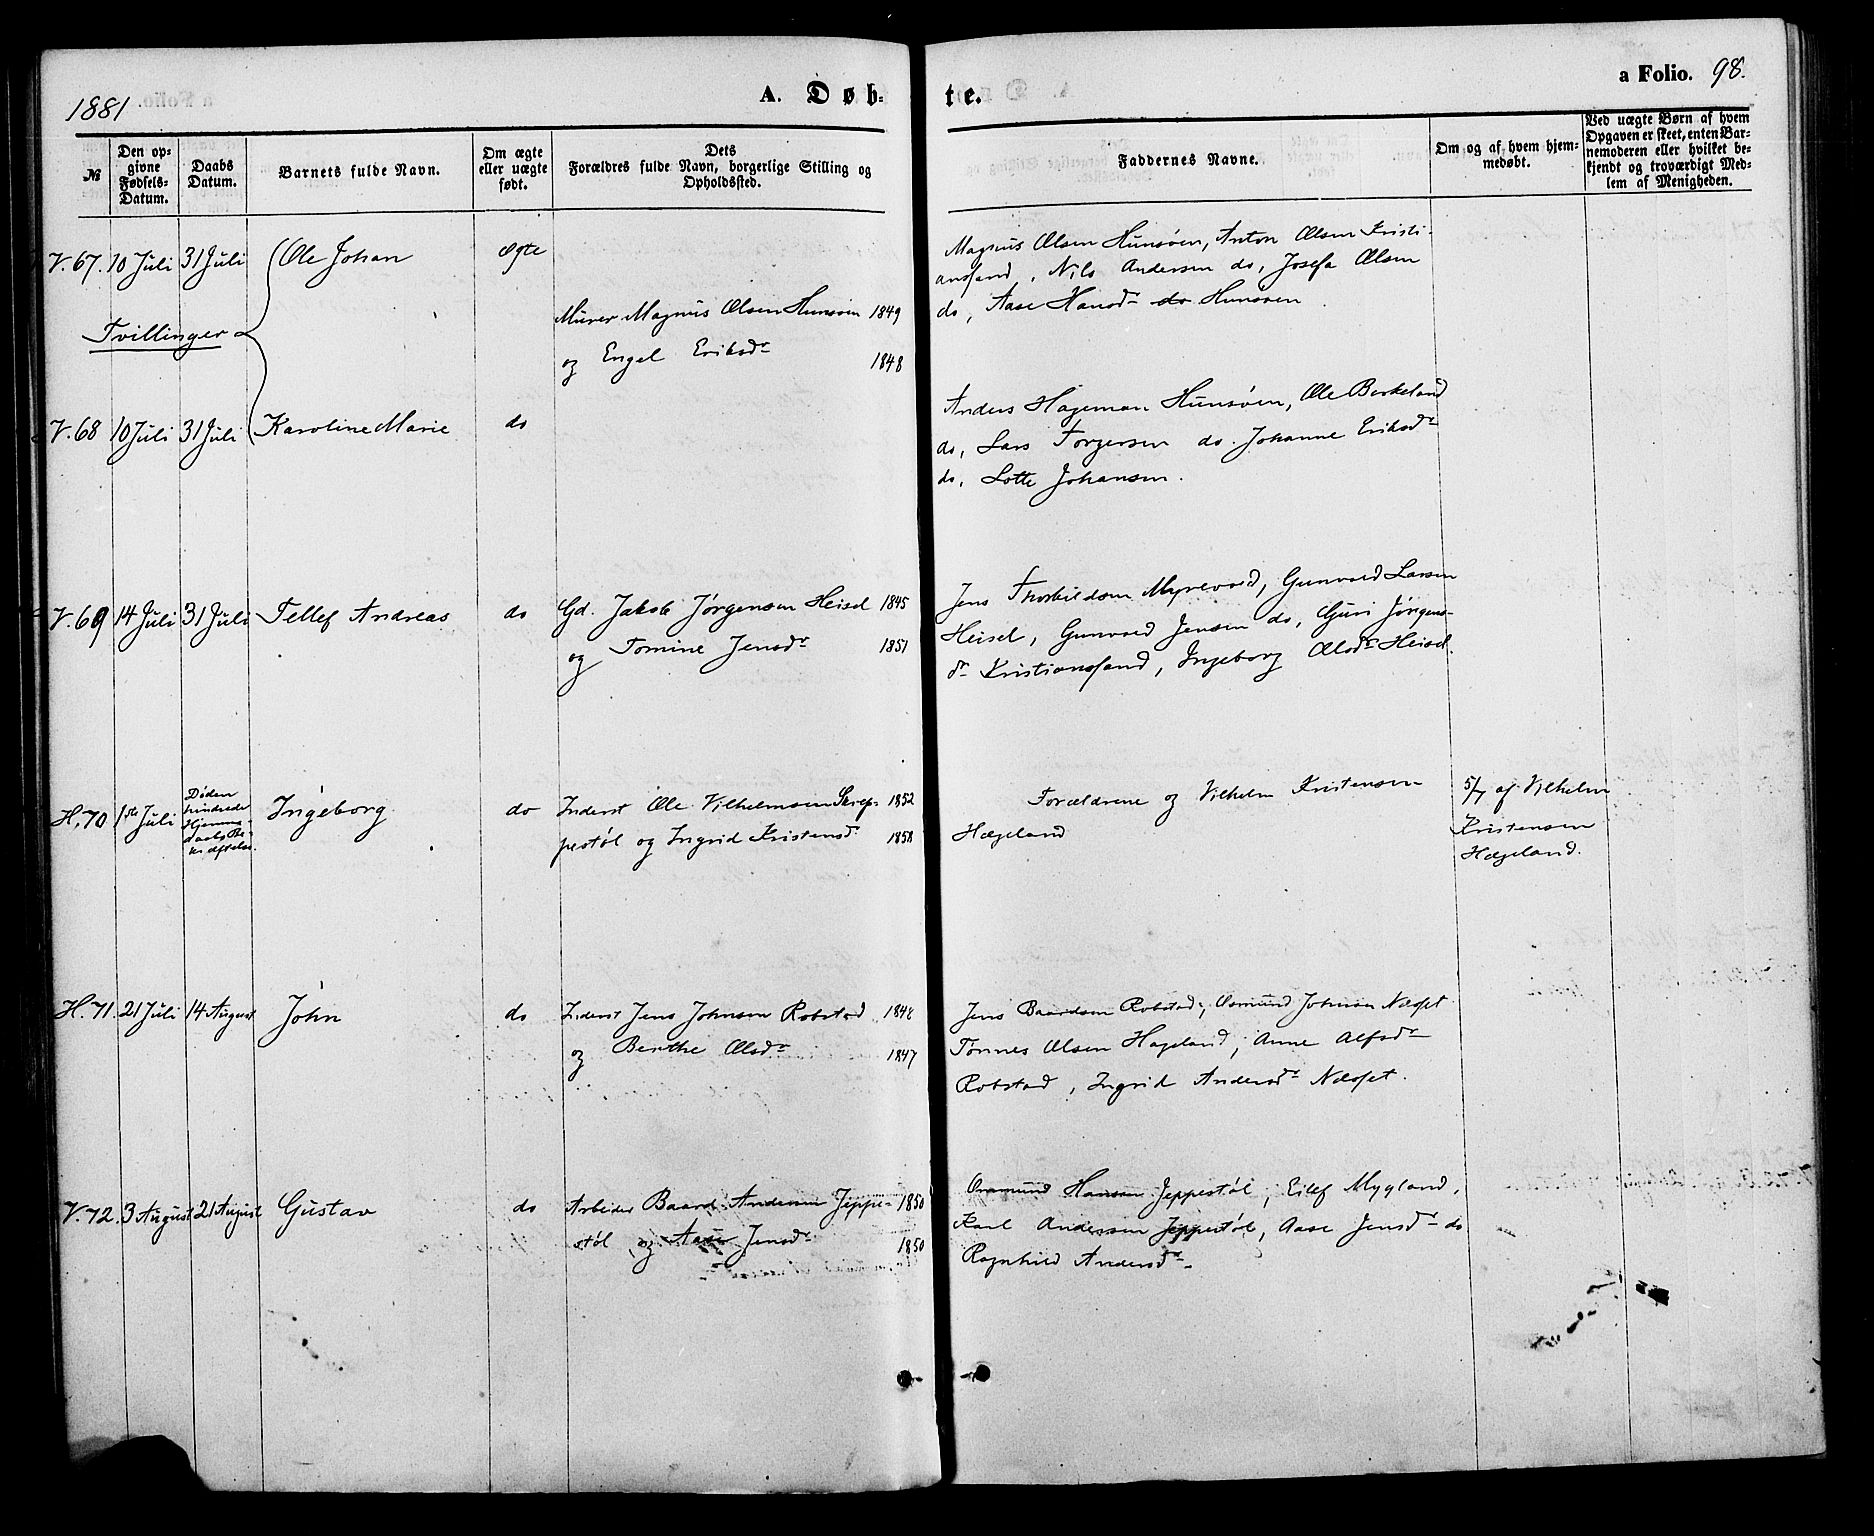 1881
A. Døb-
te.
a Folio. 98.
№
Den op-
givne
Fødsels-
Datum.
Daabs
Datum.
Barnets fulde Navn.
Om ægte
eller uægte
født.
Dets
Forældres fulde Navn, borgerlige Stilling og
Opholdssted.
Faddernes Navne.
Om og af hvem hjem-
medøbt.
Ved uægte Børn af hvem
Opgaven er skeet, enten Bar-
nemoderen eller hvilket be-
kjendt og troværdigt Med-
lem af Menigheden.
V. 67. 10 Juli 31 Juli Ole Johan Ægte
Tvillinger
Murer Magnus Olsen Hunsøen 1849
og Engel Eriksdr 1848
Magnus Olsen Hunsøen, Anton Olsen Kristi-
ansand, Nils Andersen do, Josefa Olsen
do, Aase Hansdr do Hunsøen
V. 68 10 Juli 31 Juli Karoline Marie do
Anders Hageman Hunsøen, Ole Birkeland
do, Lars Torgersen do. Johanne Eriksdr
do, Lotte Johansen.
V. 69 14 Juli 31 Juli Tellef Andreas do
Gd. Jakob Jørgensen Heisel 1845
og Tomine Jensdr 1851
Jens Thorkildsen Myrevold, Gunvald Larsen
Heisel, Gunvald Jensen do, Guri Jørgens-
dr Kristiansand, Ingeborg Olsdr Heisel.
H. 70 1ste Juli
Døden
hindrede
Hjemme-
daabs Be-
kræftelse.
Ingeborg do
Inderst Ole Vilhelmsen Skrep- 1852
pestøl og Ingrid Kristensdr 1858
Forældrene og Vilhelm Kristensen
Hægeland
5/7 af Vilhelm
Kristensen
Hægeland.
H. 71. 21 Juli 14 August John do
Inderst Jens Johnsen Robstad 1848
og Berthe Olsdr 1847
Jens Baardsen Robstad, Osmund Johnsen
Tønnes Olsen Hageland, Anne Alfsdr
Robstad, Ingrid Andersdr
V. 72. 3 August 21 August Gustav do
Arbeider Baard Andersen Jeppe- 1850
støl og Aase Jensdr 1850
Osmund Hansen Jeppestøl, Eilef Mygland,
Karl Andersen Jeppestøl, Aase Jensdr do
Ragnhild Andersdr